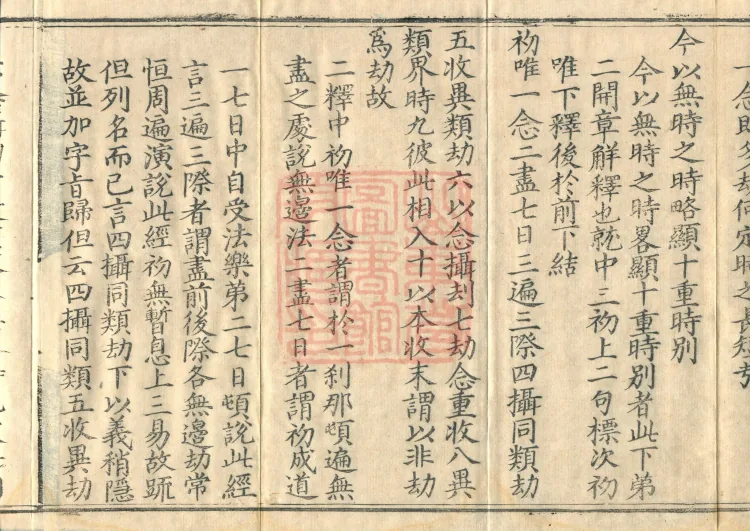 一念既名劫何定時之長短哉
今以無時之時略顯十重時別
今以無時之時畧顯十重時別者此下弟
二開章解釋也就中三初上二句標次初
唯下釋後於前下結
初唯一念二盡七日三遍三際四攝同類劫
五收異類劫六以念攝刦七劫念重收八異
類界時九彼此相入十以本收末謂以非劫
爲劫故
二釋中初唯一念者謂於一刹那頓遍無
盡之處說無邊法二盡七日者謂初成道
一七日中自受法樂弟二七日頓說此經
言三遍三際者謂盡前後際各無邊劫常
恒周遍演說此經初無暫息上三易故䟽
但列名而已言四攝同類劫下以義稍隱
故並加字㫖歸但云四攝同類五收異劫